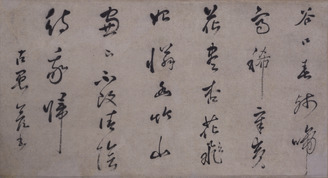 谷口春殘黃
鳥稀辛夷
花盡杏花飛
始憐幽竹山
窗下不改清陰
待我歸